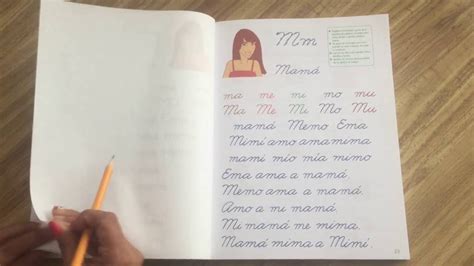 Mm
Mamá
ma me mi mo mu
Ma Me Mi Mo Mu
mamá Memo Ema
Mimí amo ama mima
mami mío mía mimo
Ema ama a mamá.
Memo ama a mamá.
Amo a mi mamá.
Mi mamá me mima.
Mamá mima a Mimí.